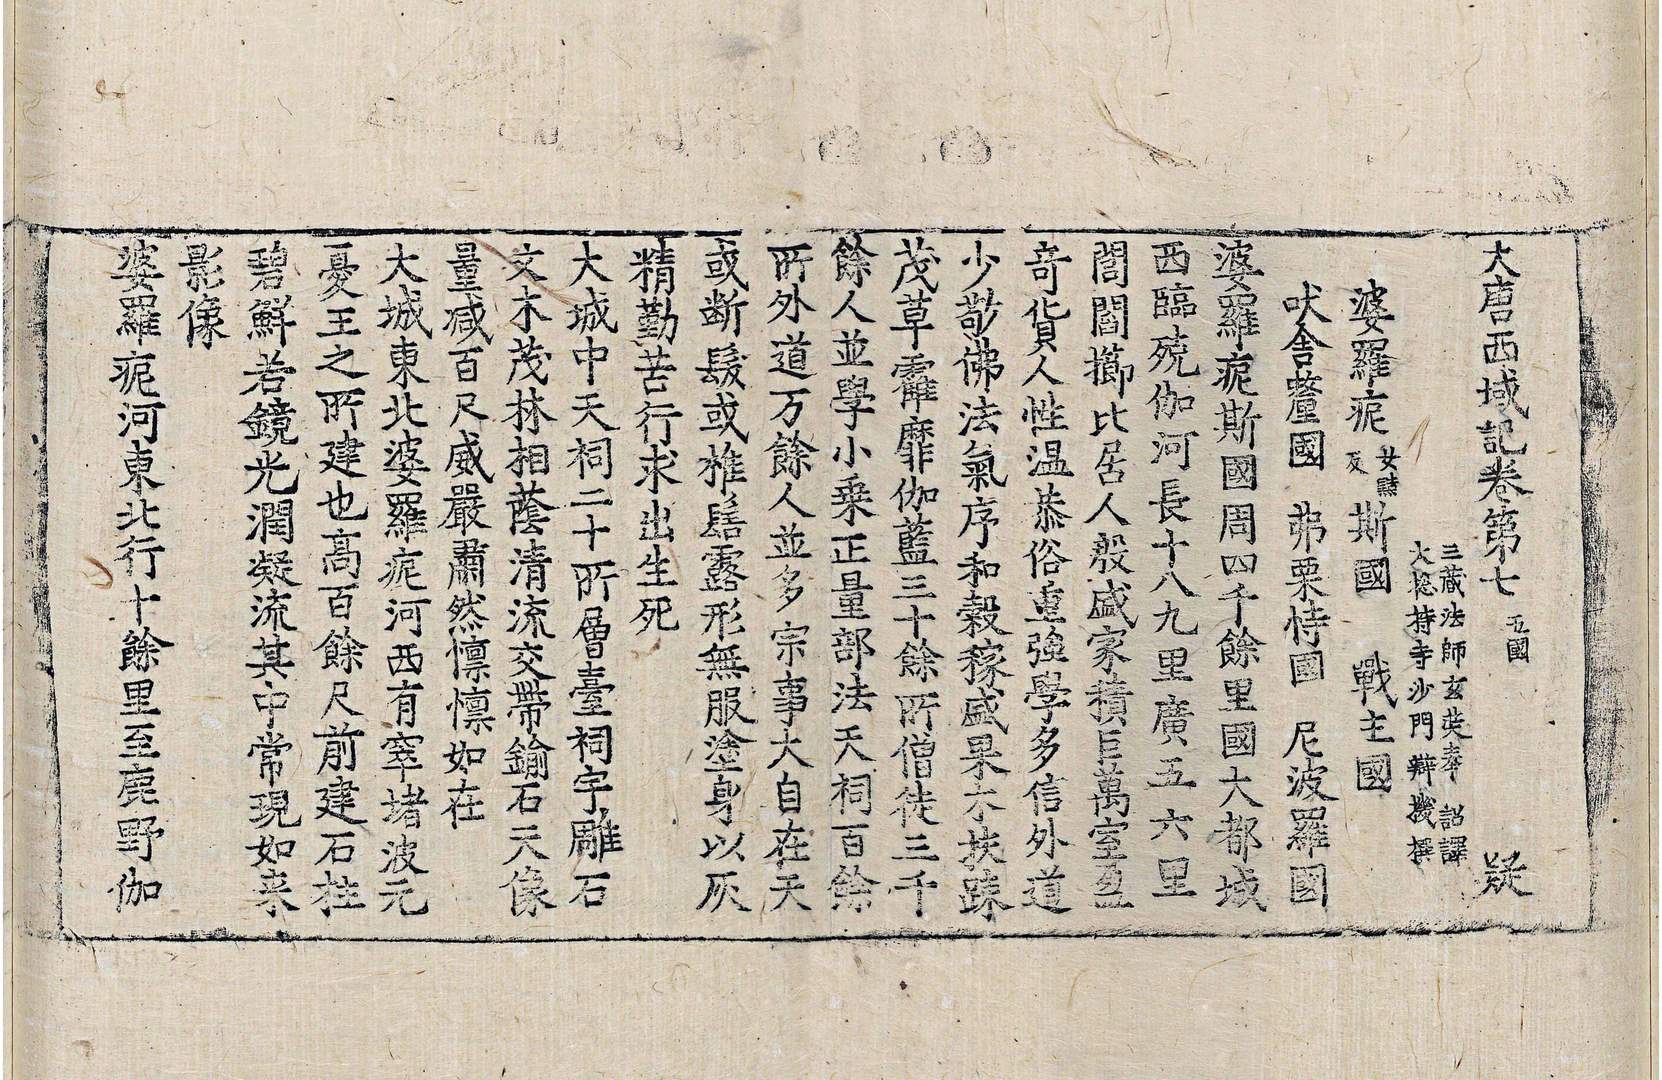 大唐西域記卷第七 五國 疑
三藏法師玄奘奉 詔譯
大揔持寺沙門辯機撰
婆羅痆女黠反斯國 戰主國
吠舍釐國 弗栗恃國 尼波羅國
婆羅痆斯國周四千餘里國大都城
西臨殑伽河長十八九里廣五六里
閭閻櫛比居人殷盛家積巨萬室盈
奇貨人性温恭俗重強學多信外道
少敬佛法氣序和穀稼盛果木扶踈
茂草靃靡伽藍三十餘所僧徒三千
餘人並學小乗正量部法天祠百餘
所外道万餘人並多宗事大自在天
或断髮或椎髻露形無服塗身以灰
精勤苦行求出生死
大城中天祠二十所層臺祠宇雕石
文木茂林相蔭清流交帶鍮石天像
量减百尺威嚴肅然懔懔如在
大城東北婆羅痆河西有窣堵波元
憂王之所建也高百餘尺前建石柱
碧鮮若鏡光潤凝流其中常現如来
影像
婆羅痆河東北行十餘里至鹿野伽